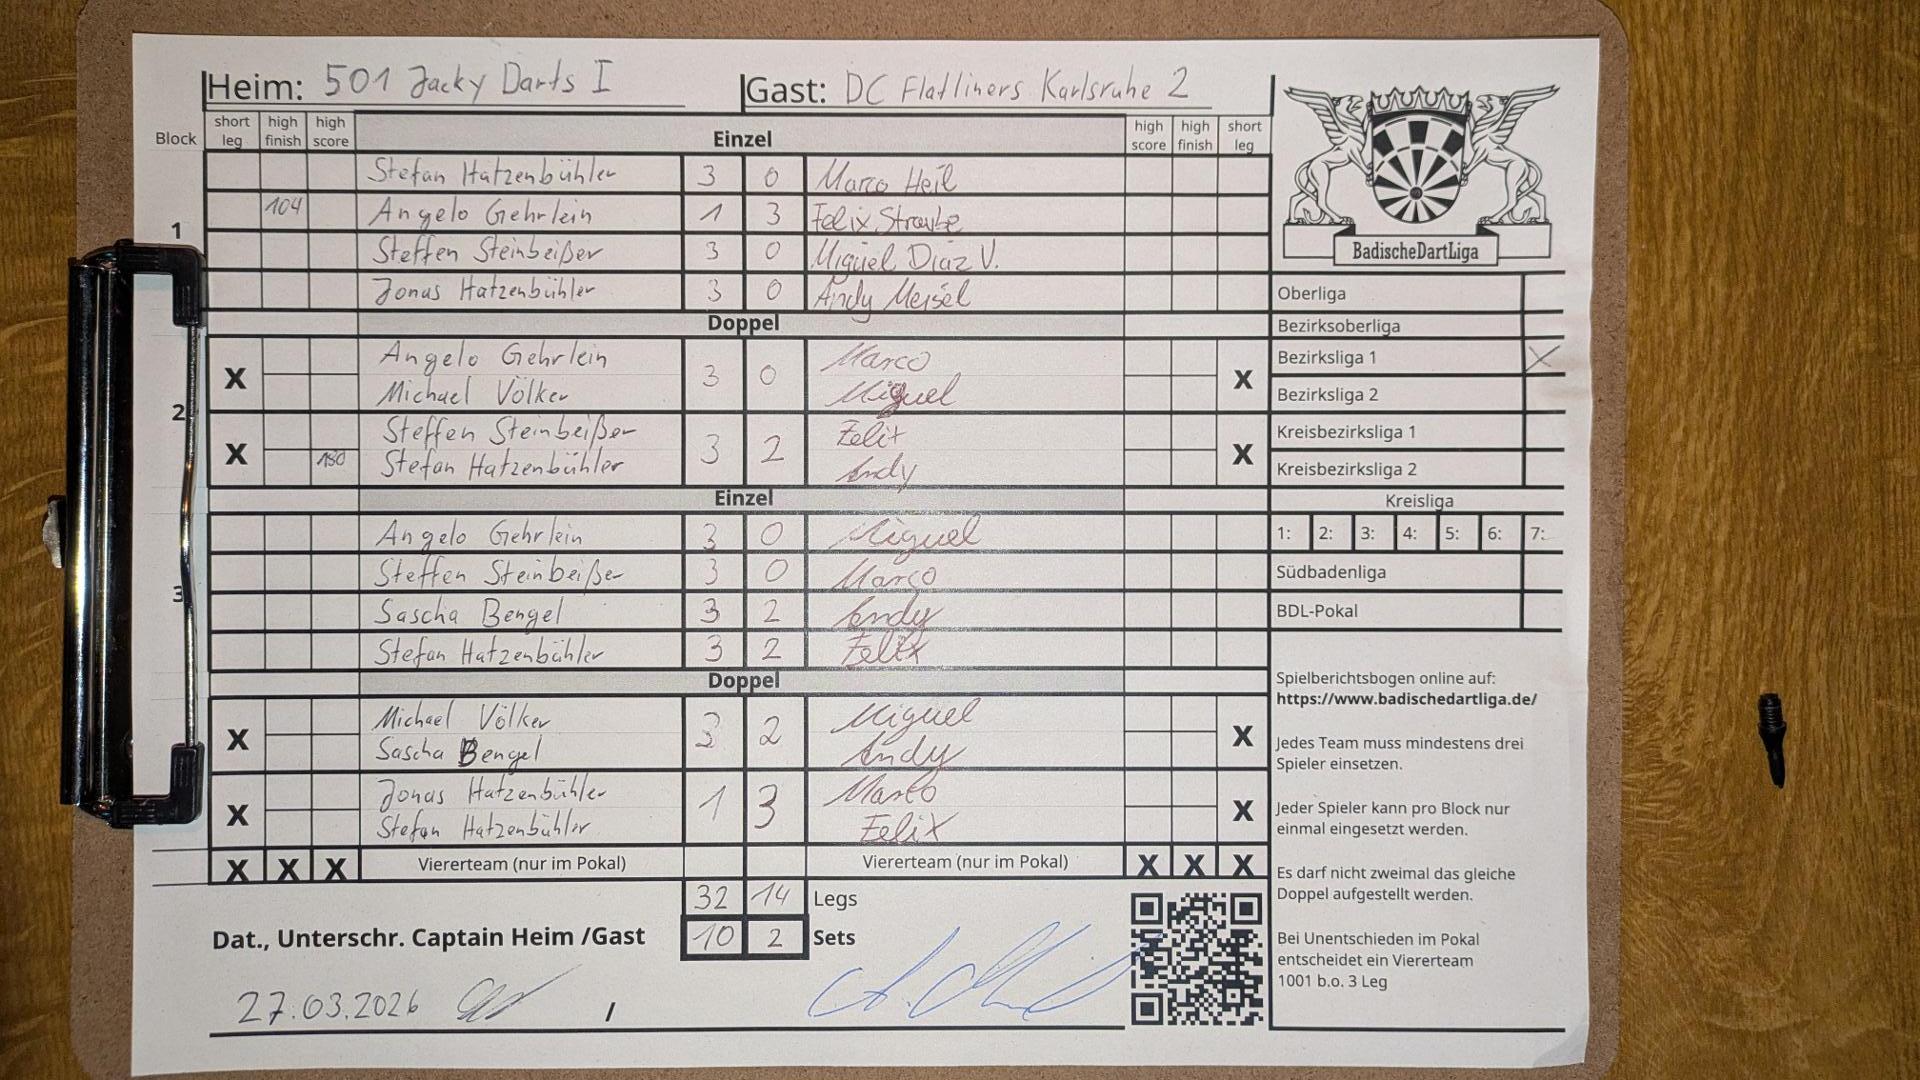 Heim: 501 Jacky Darts I Gast: DC Flatliners Karlsruhe 2
Block short leg high finish high score Einzel high score high finish short leg
Stefan Hatzenbühler 3 0 Marco Heil
1 104 Angelo Gehrlein 1 3 Felix Straube
Steffen Steinbeißer 3 0 Miguel Diaz V.
Jonas Hatzenbühler 3 0 Andy Meisel
Doppel
2
X Angelo Gehrlein 3 0 Marco X
Michael Völker Miguel
X Steffen Steinbeißer 3 2 Felix X
180 Stefan Hatzenbühler Andy
Einzel
3
Angelo Gehrlein 3 0 Miguel
Steffen Steinbeißer 3 0 Marco
Sascha Bengel 3 2 Andy
Stefan Hatzenbühler 3 2 Felix
Doppel
X Michael Völker 3 2 Miguel X
Sascha Bengel Andy
X Jonas Hatzenbühler 1 3 Marco X
Stefan Hatzenbühler Felix
X X X Viererteam (nur im Pokal) Viererteam (nur im Pokal) X X X
32 14 Legs
Dat., Unterschr. Captain Heim /Gast 10 2 Sets
27.03.2026 /
BadischeDartLiga
Oberliga
Bezirksoberliga
Bezirksliga 1 X
Bezirksliga 2
Kreisbezirksliga 1
Kreisbezirksliga 2
Kreisliga
1: 2: 3: 4: 5: 6: 7:
Südbadenliga
BDL-Pokal
Spielberichtsbogen online auf:
https://www.badischedartliga.de/
Jedes Team muss mindestens drei
Spieler einsetzen.
Jeder Spieler kann pro Block nur
einmal eingesetzt werden.
Es darf nicht zweimal das gleiche
Doppel aufgestellt werden.
Bei Unentschieden im Pokal
entscheidet ein Viererteam
1001 b.o. 3 Leg